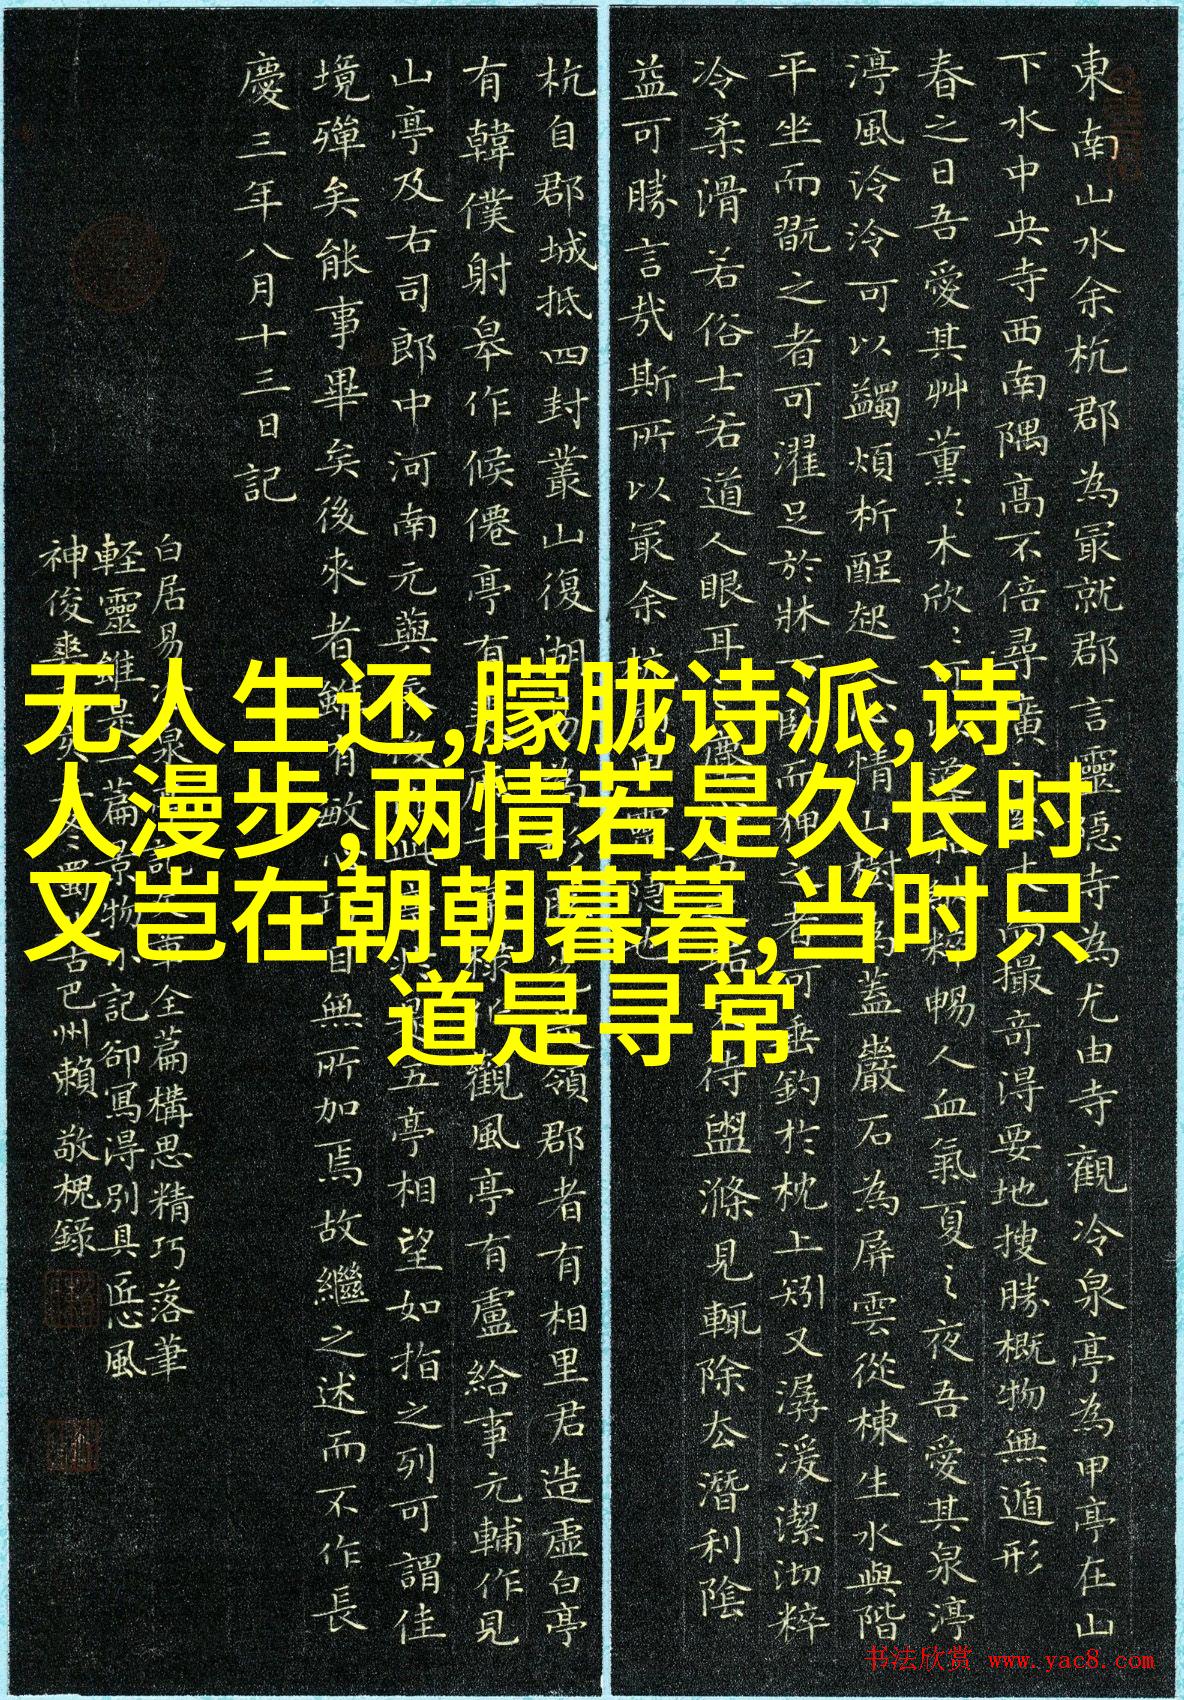 東南山水余杭郡為冣就郡言靈隱寺為尤由寺觀冷泉亭為甲亭在山
下水中央寺西南隅高不倍尋廣
撮奇得要地搜勝概物無遁形
春之日吾愛其艸薰〻木欣〻
暢人血氣夏之夜吾愛其泉渟
渟風泠泠可以蠲煩析酲起
情山樹為蓋巖石為屏雲從棟生水與階
平坐而翫之者可濯足於牀下臥而狎之者可垂釣於枕上矧又潺湲潔沏粹
冷柔滑若俗士若道人眼耳
待盥滌見輒除去潛利陰
益可勝言哉斯所以冣余杭
隱也
杭自郡城抵四封叢山復湖
領郡者有相里君造虛白亭
有韓僕射皋作候僊亭有
觀風亭有盧給事元輔作見
山亭及右司郎中河南元藇
五亭相望如指之列可謂佳
境殫矣能事畢矣後來者雖有敏心
目無所加焉故繼之述而不作長
慶三年八月十三日記
白居易冷泉
全篇構思精巧落筆
軽靈雖是一篇景物小記卻寫得別具匠心風
神俊爽
蜀
古巴州賴敬槐錄
无人生还,朦胧诗派,诗
人漫步,两情若是久长时
又岂在朝朝暮暮,当时只
道是寻常
书法欣赏 www.yac8.com